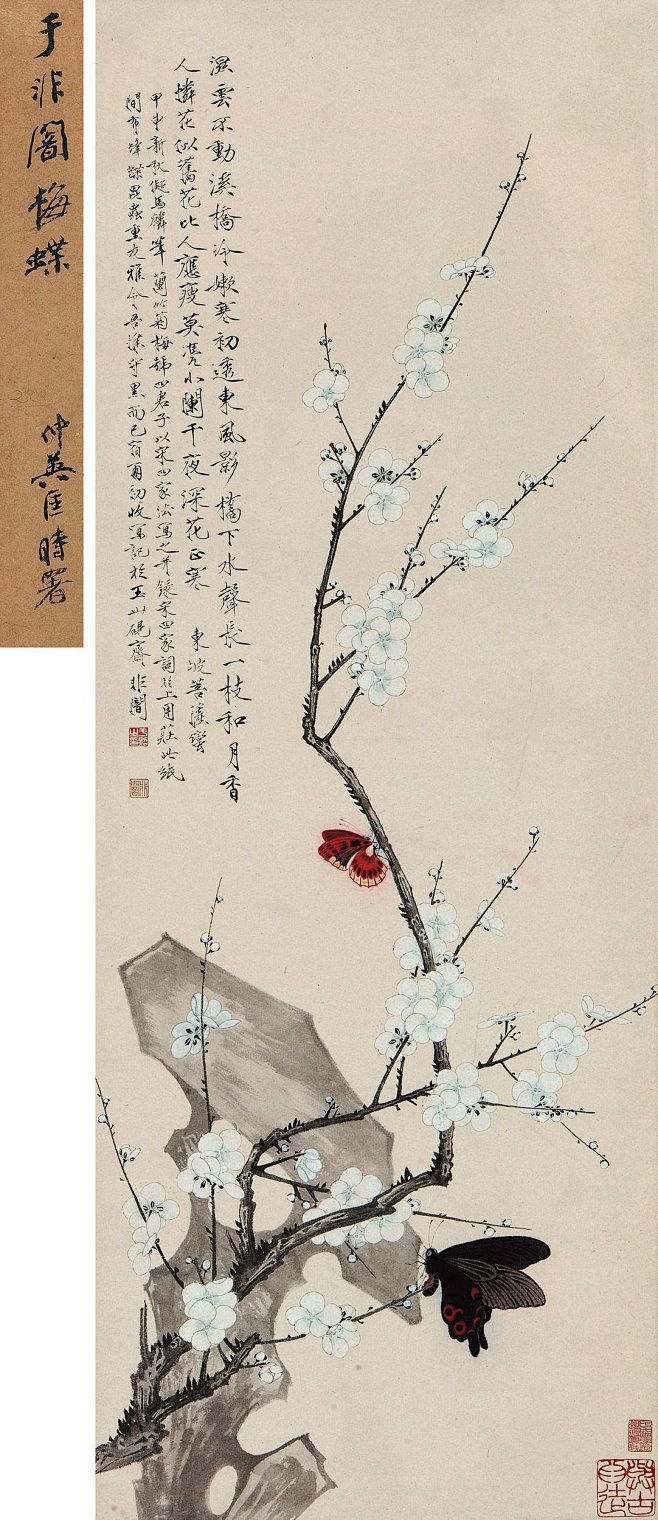 于非闇梅蝶
仲英匡時署
濕雲不動溪橋冷嫩寒初透東風影橋下水聲長一枝和月香
人憐花似舊花比人應瘦莫凭小闌干夜深花正寒 東坡菩薩蠻
甲申新秋儗馬麟筆蘭竹菊梅號四君子以宋四家法寫之并錄宋四家詞於上用莊此紙
間布蜂蝶昆蟲重友雅令吾守黑而已宿雨初收寫記於玉山硯齋 非闇